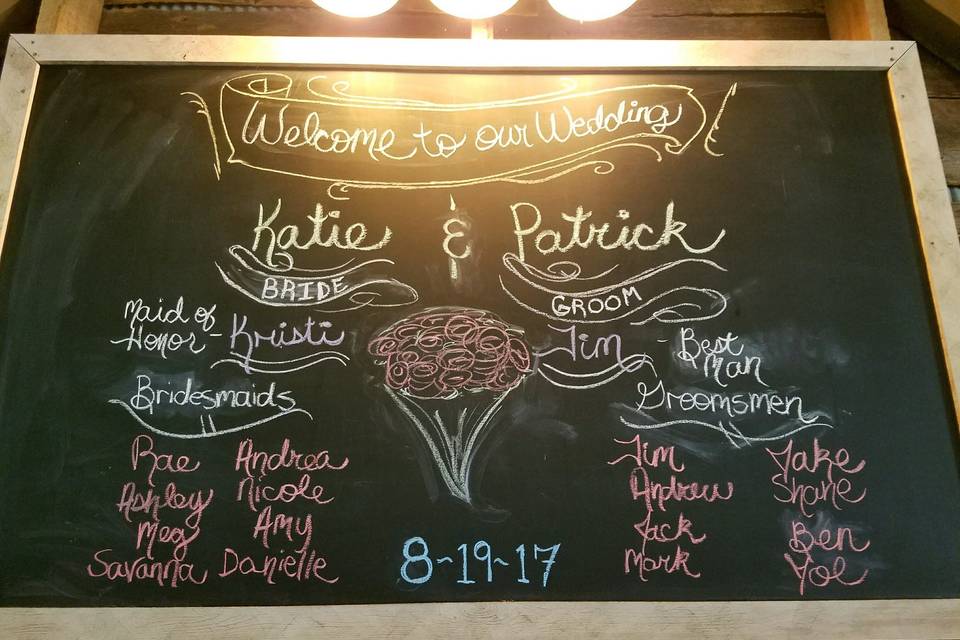 Welcome to our Wedding
Katie & Patrick
BRIDE GROOM
Maid of Honor - Kristi
Jim - Best Man
Bridesmaids
Rae Andrea
Ashley Nicole
Meg Amy
Savanna Danielle
Groomsmen
Jim Jake
Andrew Shane
Jack Ben
Mark Joe
8-19-17